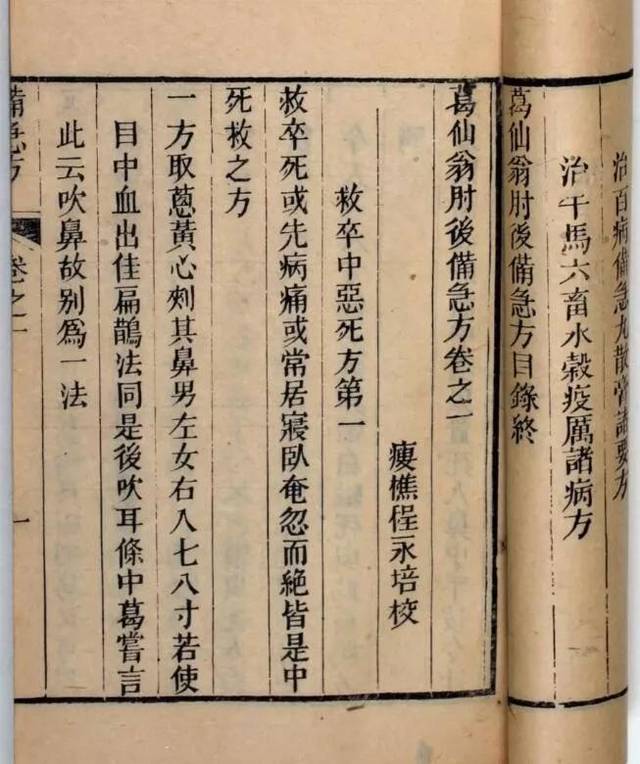 治百病備急丸散膏諸要方
治牛馬六畜水穀疫厲諸病方
葛仙翁肘後備急方目錄終
葛仙翁肘後備急方卷之一
瘦樵程永培校
救卒中惡死方第一
救卒死或先病痛或常居寢臥奄忽而絕皆是中
死救之方
一方取葱黃心刺其鼻男左女右入七八寸若使
目中血出佳扁鵲法同是後吹耳條中葛嘗言
此云吹鼻故别爲一法
備急方
卷之一
一